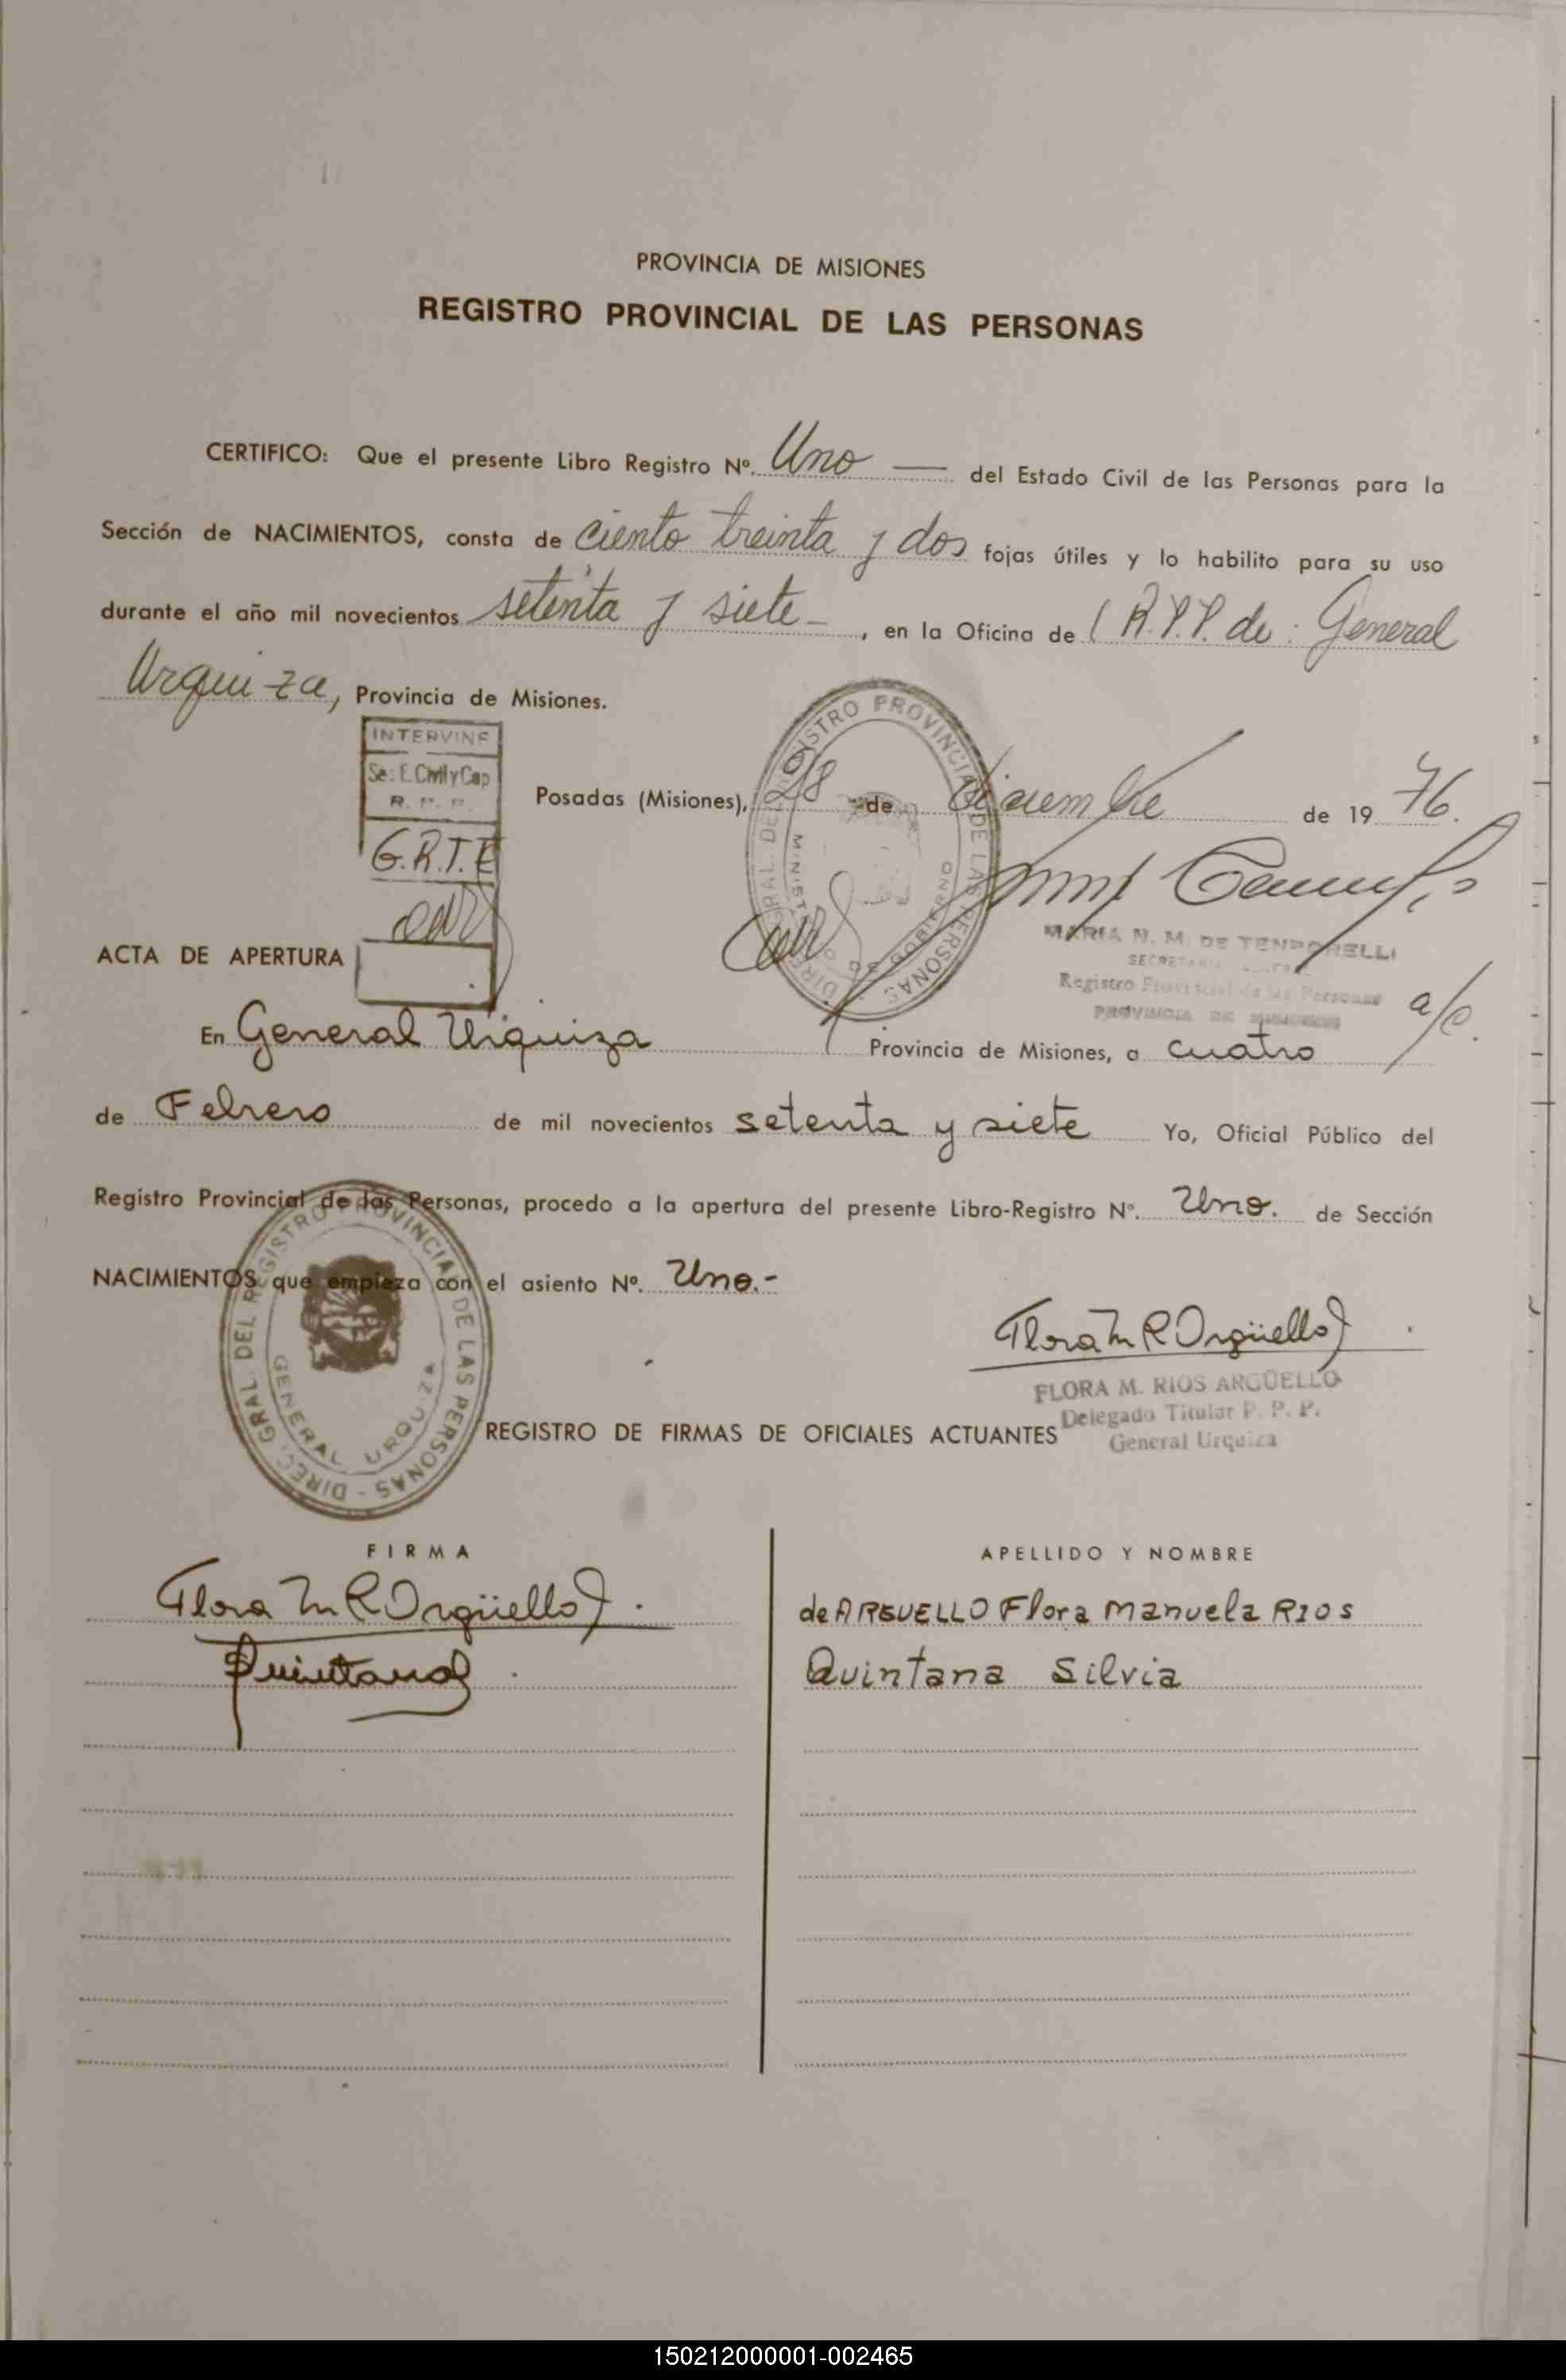 PROVINCIA DE MISIONES
REGISTRO PROVINCIAL DE LAS PERSONAS
CERTIFICO: Que el presente Libro Registro Nº. Uno — del Estado Civil de las Personas para la
Sección de NACIMIENTOS, consta de ciento treinta y dos fojas útiles y lo habilito para su uso
durante el año mil novecientos setenta y siete - , en la Oficina de R.P.P. de: General
Urquiza, Provincia de Misiones.
INTERVINE
Sec. E. Civil y Cap
R. P. P.
G.R.T.E
Posadas (Misiones), 28 de diciembre de 1976.
DIREC. GRAL. DEL REGISTRO PROVINCIAL DE LAS PERSONAS
MARIA N. M. DE TEMPORELLI
Registro Provincial de las Personas
PROVINCIA DE MISIONES
a/c.
ACTA DE APERTURA
En General Urquiza Provincia de Misiones, a cuatro
de Febrero de mil novecientos setenta y siete Yo, Oficial Público del
Registro Provincial de las Personas, procedo a la apertura del presente Libro-Registro Nº. Uno. de Sección
NACIMIENTOS que empieza con el asiento Nº. Uno.-
DIREC. GRAL. DEL REGISTRO PROVINCIAL DE LAS PERSONAS -
GENERAL URQUIZA
Flora M R Argüello
FLORA M. RIOS ARGÜELLO
Delegado Titular P. P. P.
General Urquiza
REGISTRO DE FIRMAS DE OFICIALES ACTUANTES
FIRMA APELLIDO Y NOMBRE
Flora M R Argüello. de ARGUELLO Flora Manuela RIOS
Quintana Quintana Silvia
150212000001-002465